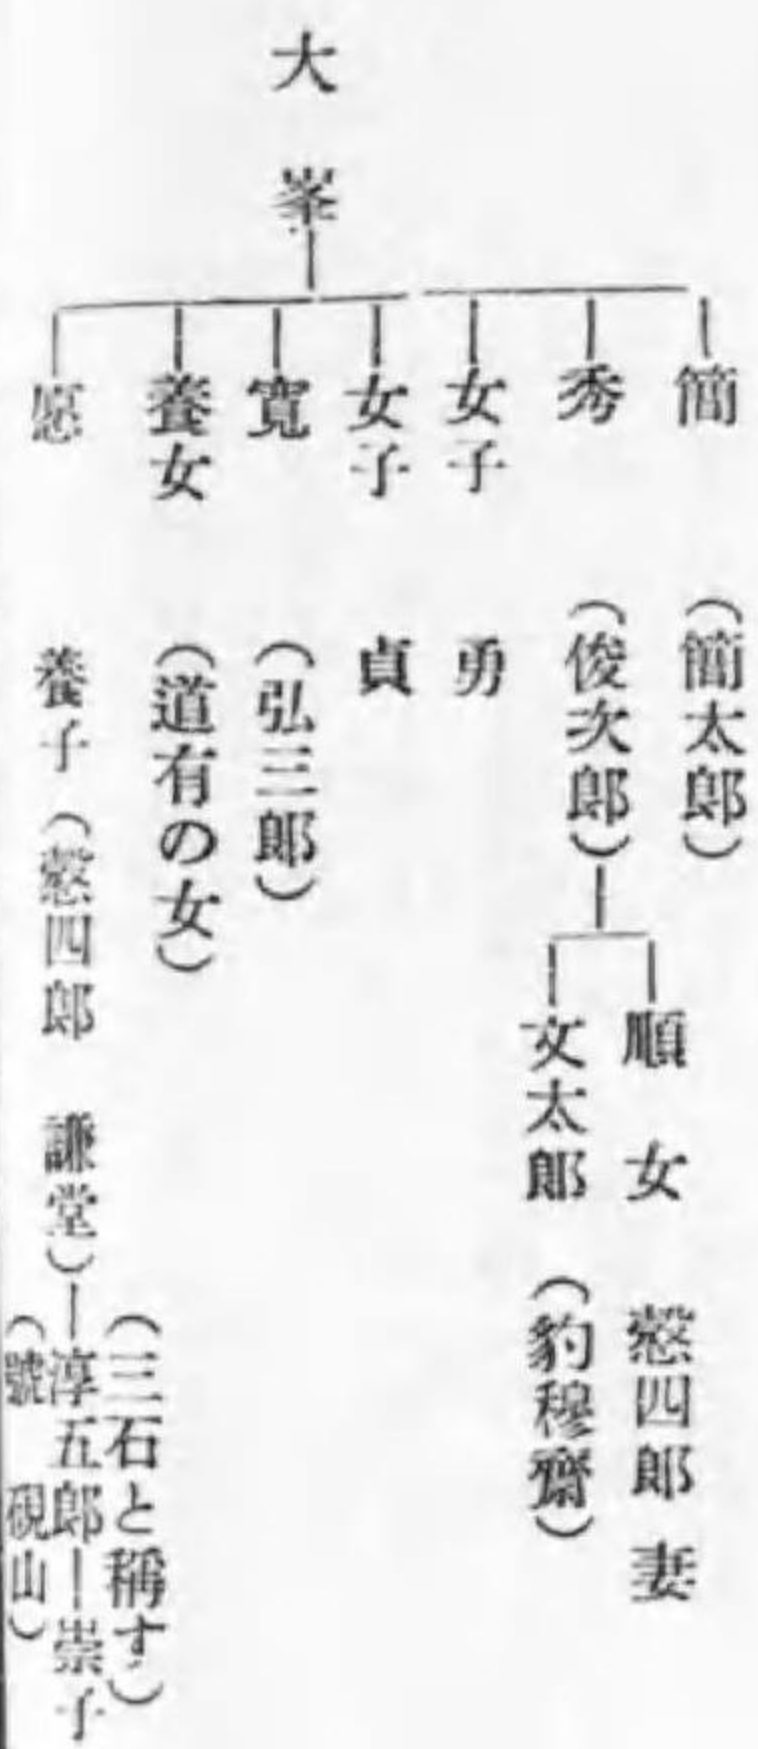 大峯
簡
(簡太郎)
秀
(俊次郎)
順女
愨四郎妻
文太郎
(豹穆齋)
女子
勇
女子
貞
寬
(弘三郎)
養女
(道有の女)
愿
養子(愨四郎 謙堂)
(三石と稱す)
淳五郎
(號 硯山)
崇子